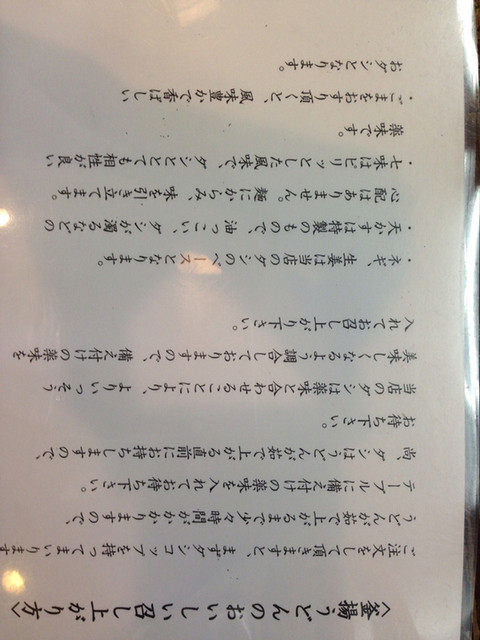 〈釜揚うどんのおいしい召し上がり方〉
ご注文をして頂きますと、まずダシコップを持ってまいります
うどんが茹で上がるまで少々時間がかかりますので、
テーブルに備え付けの薬味を入れてお待ち下さい。
尚、ダシはうどんが茹で上がる直前にお持ちしますので、
お待ち下さい。
当店のダシは薬味と合わせることにより、よりいっそう
美味しくなるよう調合しておりますので、備え付けの薬味を
入れてお召し上がり下さい。
・ネギ、生姜は当店のダシのベースとなります。
・天かすは特製のもので、油っこい、ダシが濁るなどの
心配はありません。麺にからみ、味を引き立てます。
・七味はピリッとした風味で、ダシととても相性が良い
薬味です。
・ごまをおすり頂くと、風味豊かで香ばしい
おダシとなります。